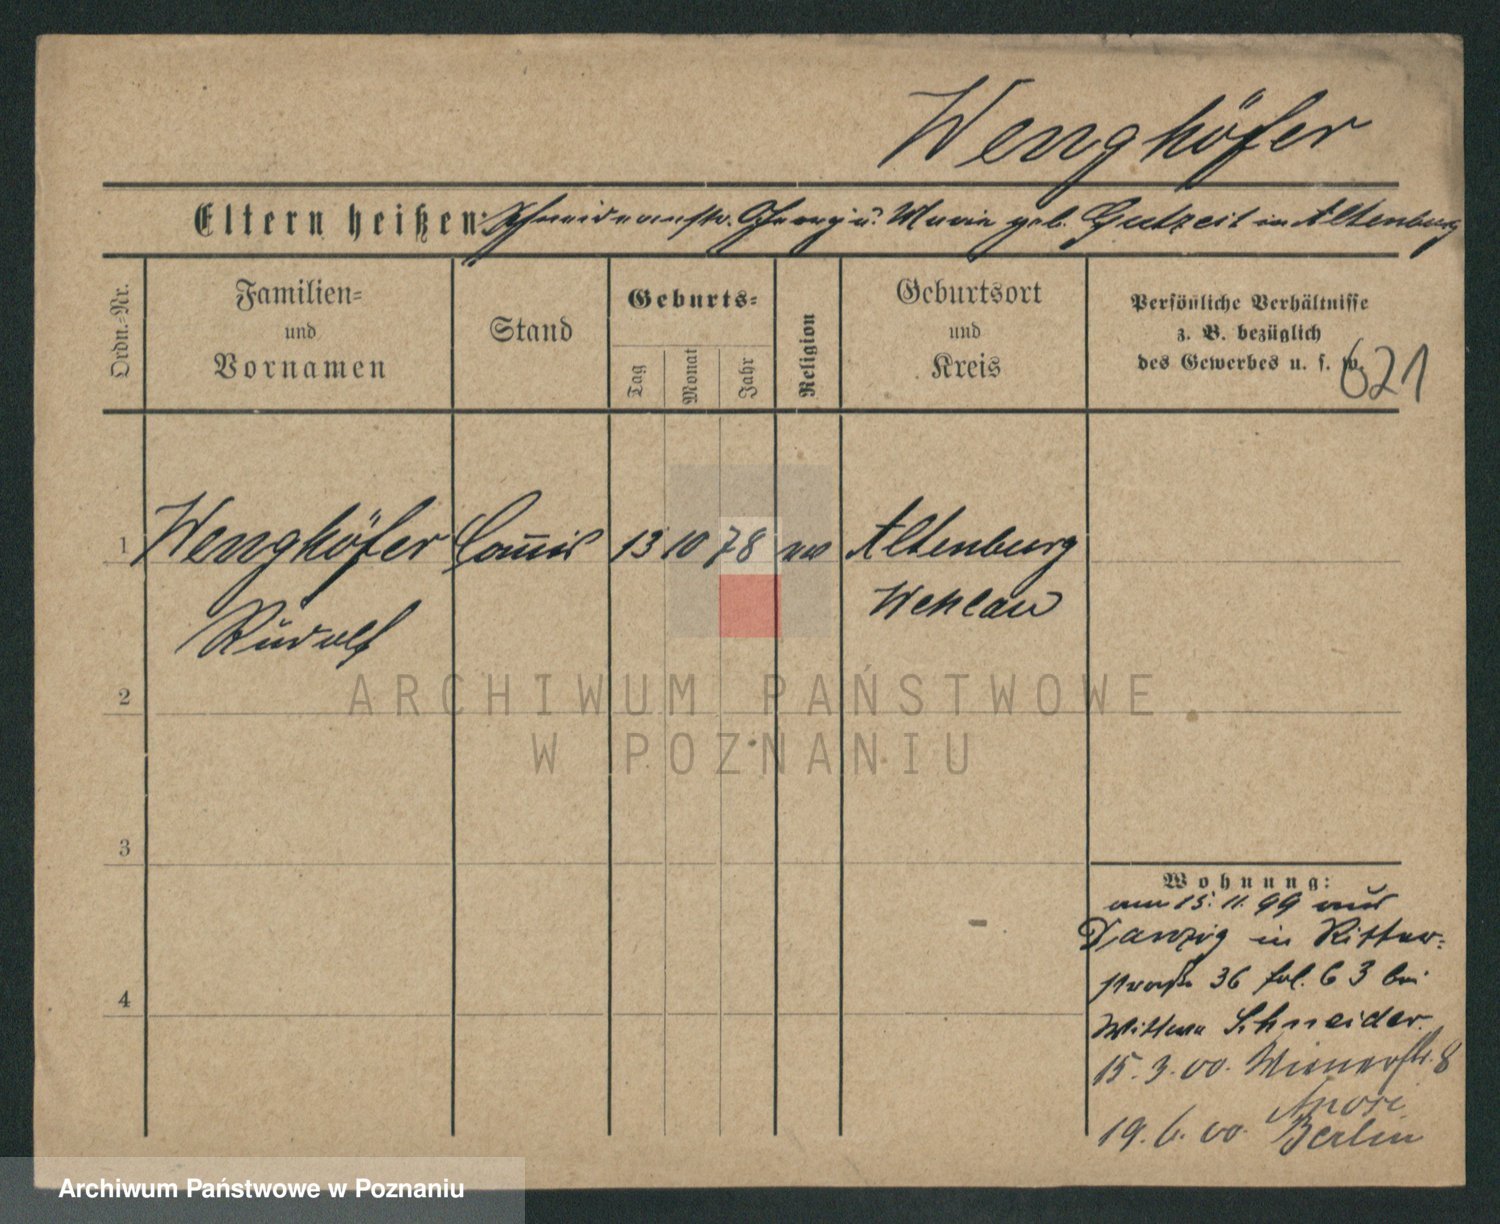 Wenghöfer
Eltern heißen: Schneidermstr. Georg u. Marie geb. Gutzeit in Altenburg
Ordn.-Nr.
Familien-
und
Vornamen
Stand
Geburts-
Tag
Monat
Jahr
Religion
Geburtsort
und
Kreis
Persönliche Verhältnisse
z. B. bezüglich
des Gewerbes u. s. w.
621
1 Wenghöfer Commis 13 10 78 ev Altenburg
Rudolf Wehlau
2
ARCHIWUM PAŃSTWOWE
W POZNANIU
3
Wohnung:
am 15. 11. 99 aus
Danzig in Ritter-
straße 36 fol. 63 bei
Wittwe Schneider.
15. 3. 00. Wienerstr. 8
19. 6. 00. Berlin
4
Archiwum Państwowe w Poznaniu